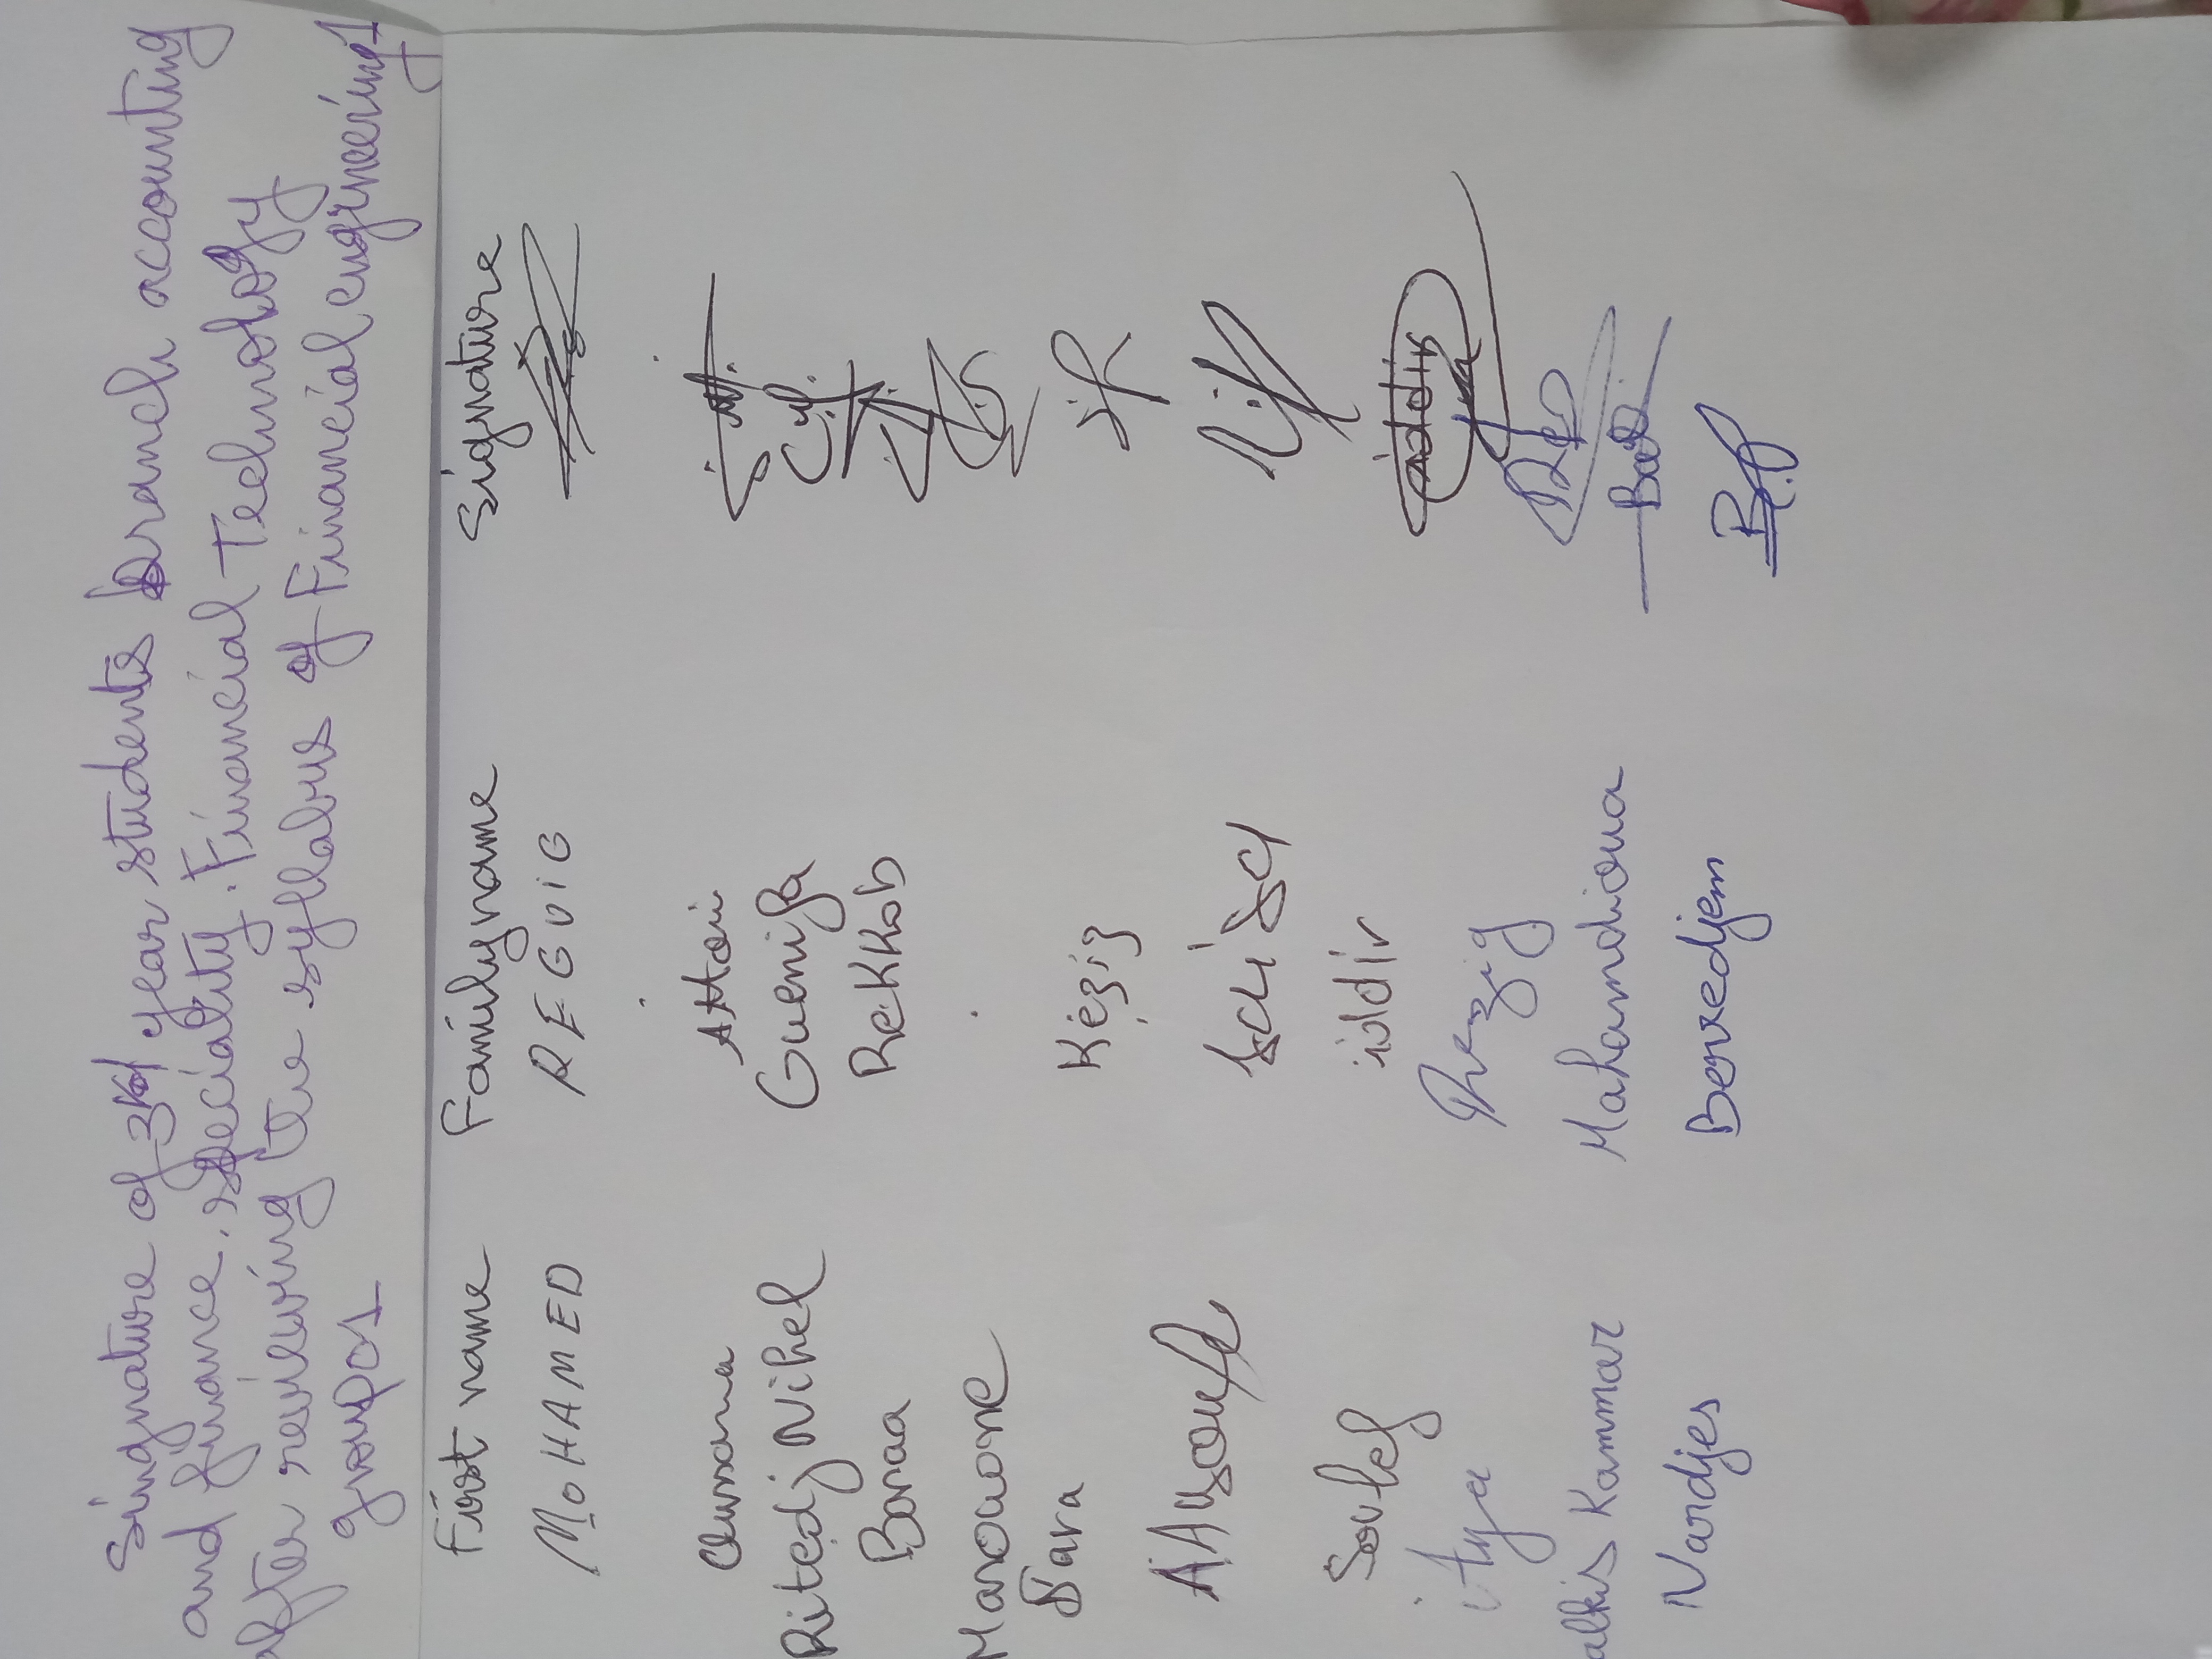 Singnature of 3rd year students branch accounting
and finance, speciality. Financial Technology
after reviewing the syllabus of Financial engineering 1
groupo1
First name Family name Signature
MOHAMED REGUIG
Oussama Attoui
Ritedj Nihel Guenifa
Baraa Rekkab
Marouane
Sara Kéziz
Soulef ildir
Aya Rezig
alkis Kammar Mahamdioua
Nardjes Benredjem